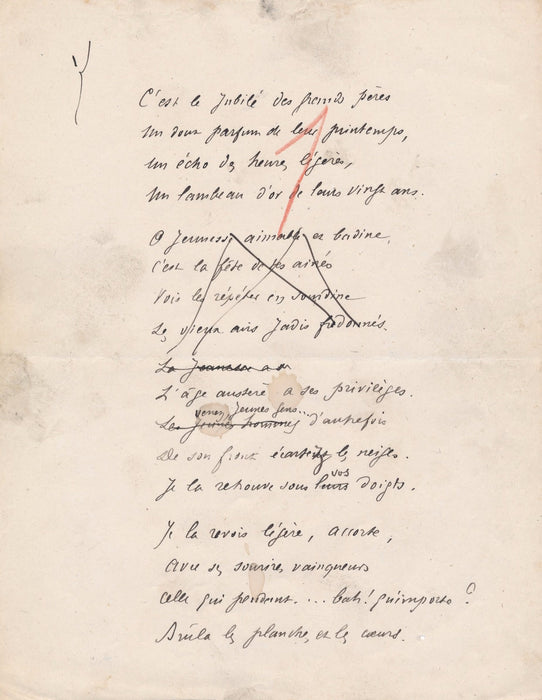 C'est le Jubilé des grands pères
Un doux parfum de leur printemps,
Un écho des heures légères,
Un lambeau d'or de leurs vingt ans.
O Jeunesse aimable et badine,
C'est la fête de tes aînés
Vois les répéter en sourdine
Les vieux airs jadis fredonnés.
La Jeunesse a
L'âge austère a ses privilèges.
venez, jeunes gens...
Les jeunes hommes d'autrefois
De son front écartez les neiges.
vos
Je la retrouve sous leurs doigts.
Je la revois légère, accorte,
Avec ses sourires vainqueurs
Celle qui pendant... bah! qu'importe?
Brûla les planches, et les cœurs.